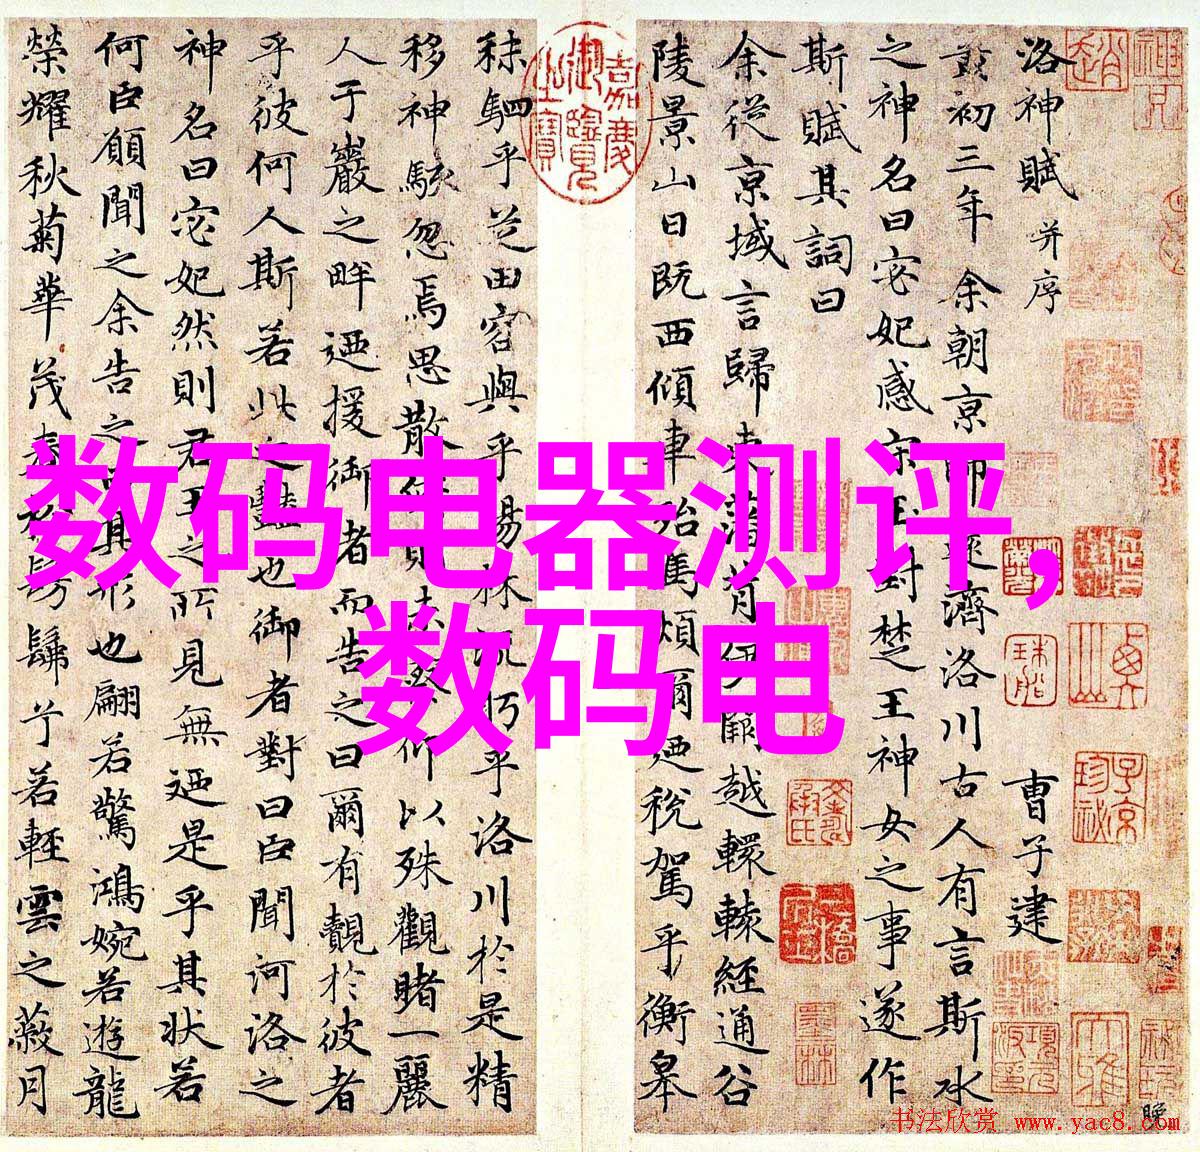 数码电器测评，
数码电
洛神賦 并序 曹子建
黃初三年余朝京師還濟洛川古人有言斯水
之神名曰宓妃感宋玉對楚王神女之事遂作
斯賦其詞曰
余從京域言歸東藩背伊闕越轘轅經通谷
陵景山日既西傾車殆馬煩爾廼稅駕乎衡皋
嘉慶御覽之寶
秣駟乎芝田容與乎楊林流眄乎洛川於是精
移神駭忽焉思散俯則未察仰以殊觀睹一麗
人于巖之畔廼援御者而告之曰爾有覿於彼者
乎彼何人斯若此之豔也御者對曰臣聞河洛之
神名曰宓妃然則君王之所見無廼是乎其狀若
何臣願聞之余告之曰其形也翩若驚鴻婉若遊龍
榮耀秋菊華茂春松髣髴兮若輕雲之蔽月
书法欣赏 www.yac8.com